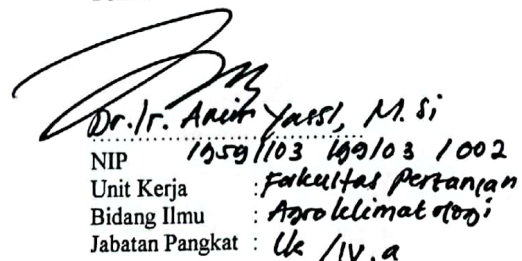 Dr. Ir. Amir Yassi, M. Si
NIP 19591103 199103 1 002
Unit Kerja : Fakultas Pertanian
Bidang Ilmu : Agroklimatologi
Jabatan Pangkat : Lk /IV.a